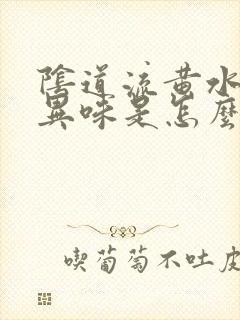 陰道流黄水
異味是怎麽
喫葡萄不吐皮